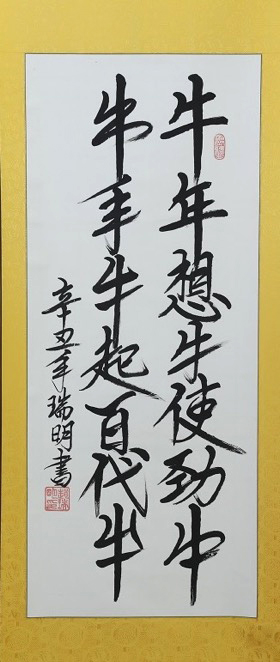 牛年想牛使劲牛
牛年牛起百代牛
辛丑年瑞明書